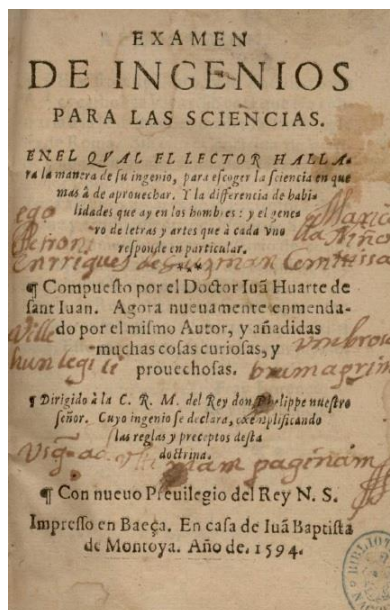 EXAMEN
DE INGENIOS
PARA LAS SCIENCIAS.
EN EL QVAL EL LECTOR HALLA-
ra la manera de su ingenio, para escoger la sciencia en que
mas â de aprouechar. Y la differencia de habi-
lidades que ay en los hombres: y el gene-
ro de letras y artes que à cada vno
responde en particular.
ego Maria
de la Niño
Enrriques de Guzman Comitissa
¶ Compuesto por el Doctor Iuã Huarte de
sant Iuan. Agora nueuamente enmenda-
do por el mismo Autor, y añadidas
muchas cosas curiosas, y
prouechosas.
hunc legi
¶ Dirigido à la C. R. M. del Rey don Phelippe nuestro
señor. Cuyo ingenio se declara, exemplificando
las reglas y preceptos desta
doctrina.
paginam
¶ Con nueuo Preuilegio del Rey N. S.
Impresso en Baeça. En casa de Iuã Baptista
de Montoya. Año de. 1594.